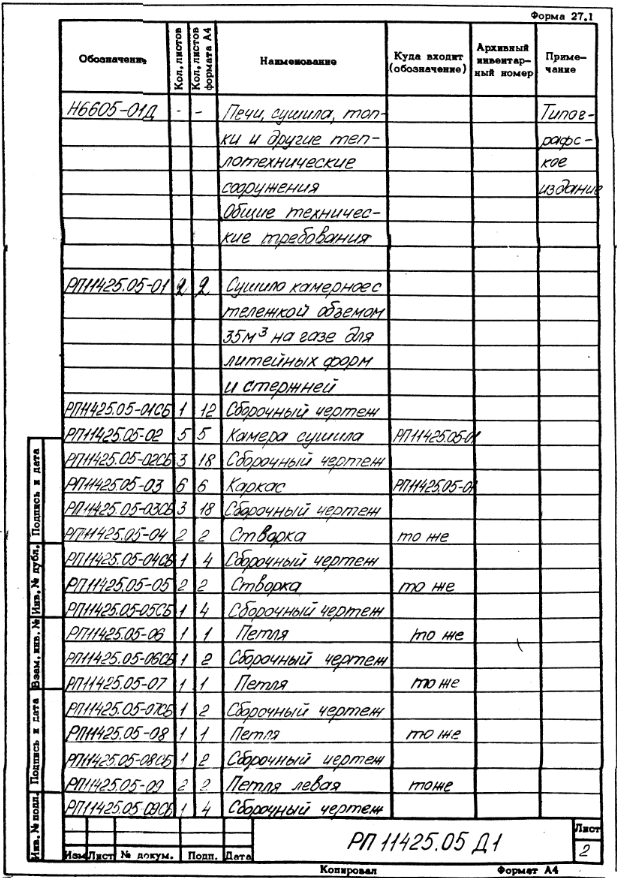 Форма 27.1
Обозначение Кол. листов Кол. листов формата А4 Наименование Куда входит (обозначение) Архивный инвентарный номер Примечание
Н6605-01Д - - Печи, сушила, топ- Типог-
ки и другие теп- рафс-
лотехнические кое
сооружения издание
Общие техничес-
кие требования
РП11425.05-01 2 2 Сушило камерное с
тележкой объемом
35м³ на газе для
литейных форм
и стержней
РП11425.05-01СБ 1 12 Сборочный чертеж
РП11425.05-02 5 5 Камера сушила РП11425.05-01
РП11425.05-02СБ 3 18 Сборочный чертеж
РП11425.05-03 6 6 Каркас РП11425.05-01
РП11425.05-03СБ 3 18 Сборочный чертеж
РП11425.05-04 2 2 Створка то же
РП11425.05-04СБ 1 4 Сборочный чертеж
РП11425.05-05 2 2 Створка то же
РП11425.05-05СБ 1 4 Сборочный чертеж
РП11425.05-06 1 1 Петля то же
РП11425.05-06СБ 1 2 Сборочный чертеж
РП11425.05-07 1 1 Петля то же
РП11425.05-07СБ 1 2 Сборочный чертеж
РП11425.05-08 1 1 Петля то же
РП11425.05-08СБ 1 2 Сборочный чертеж
РП11425.05-09 2 2 Петля левая то же
РП11425.05-09СБ 1 4 Сборочный чертеж
Инв. № подл. Подпись и дата Взам. инв. № Инв. № дубл. Подпись и дата
РП 11425.05 Д1
Лист
2
Изм Лист № докум. Подп. Дата
Копировал Формат А4